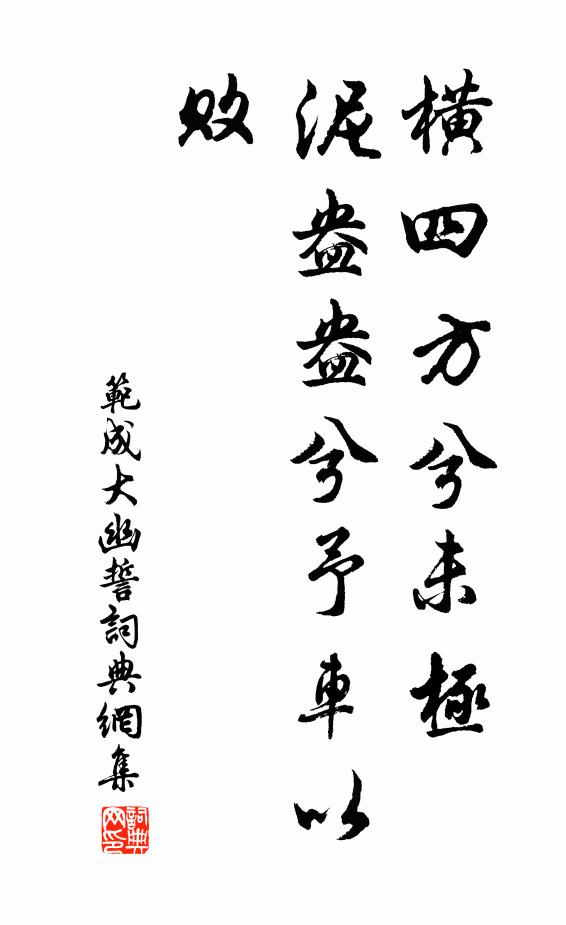 橫四方兮未極
泥盎盎兮予車以
敗
範成大幽誓詞典網集
詞典
网印